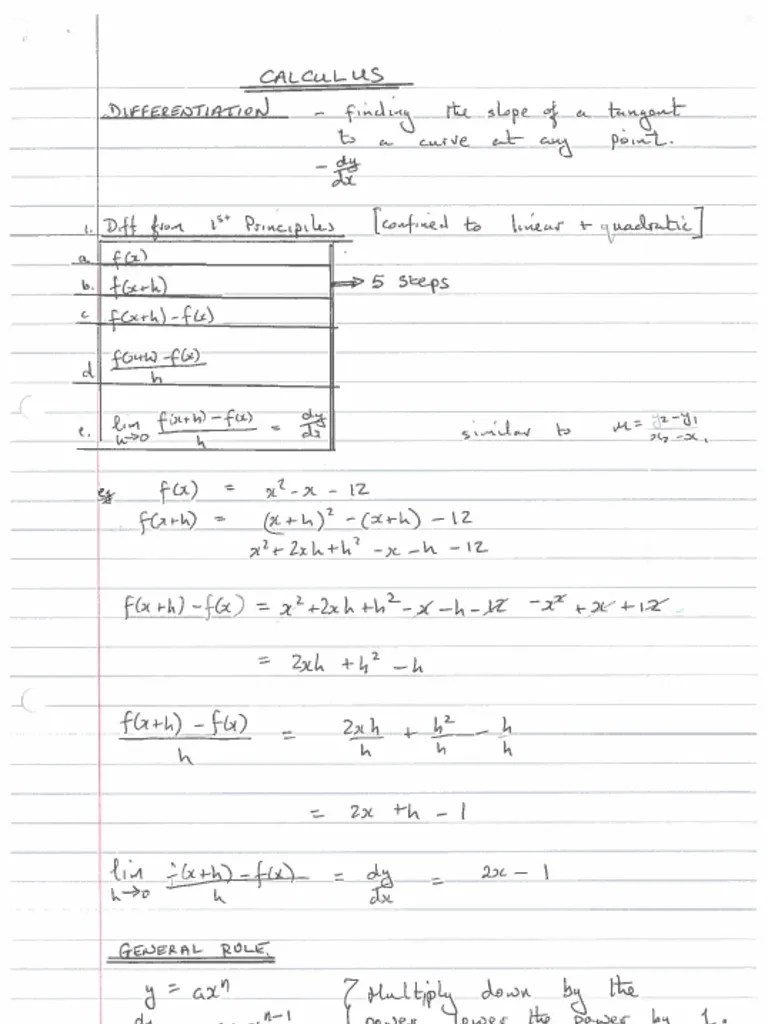 CALCULUS
DIFFERENTIATION - finding the slope of a tangent
to a curve at any point.
- dy/dx
1. Diff from 1st Principiles [confined to linear + quadratic]
a. f(x)
b. f(x+h) ⇒ 5 steps
c. f(x+h) - f(x)
d. (f(x+h) - f(x))/h
e. lim h→0 (f(x+h) - f(x))/h = dy/dx similar to m = (y2 - y1)/(x2 - x1)
eg f(x) = x² - x - 12
f(x+h) = (x+h)² - (x+h) - 12
x² + 2xh + h² - x - h - 12
f(x+h) - f(x) = x² + 2xh + h² - x - h - 12 - x² + x + 12
= 2xh + h² - h
(f(x+h) - f(x))/h = 2xh/h + h²/h - h/h
= 2x + h - 1
lim h→0 (f(x+h) - f(x))/h = dy/dx = 2x - 1
GENERAL RULE.
y = axⁿ Multiply down by the
n-1 power, lower the power by 1.